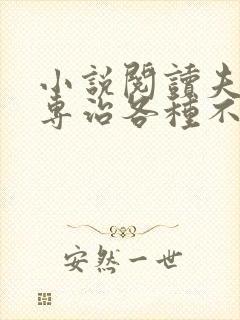 小說閱讀夫
專治各種不
安然一世